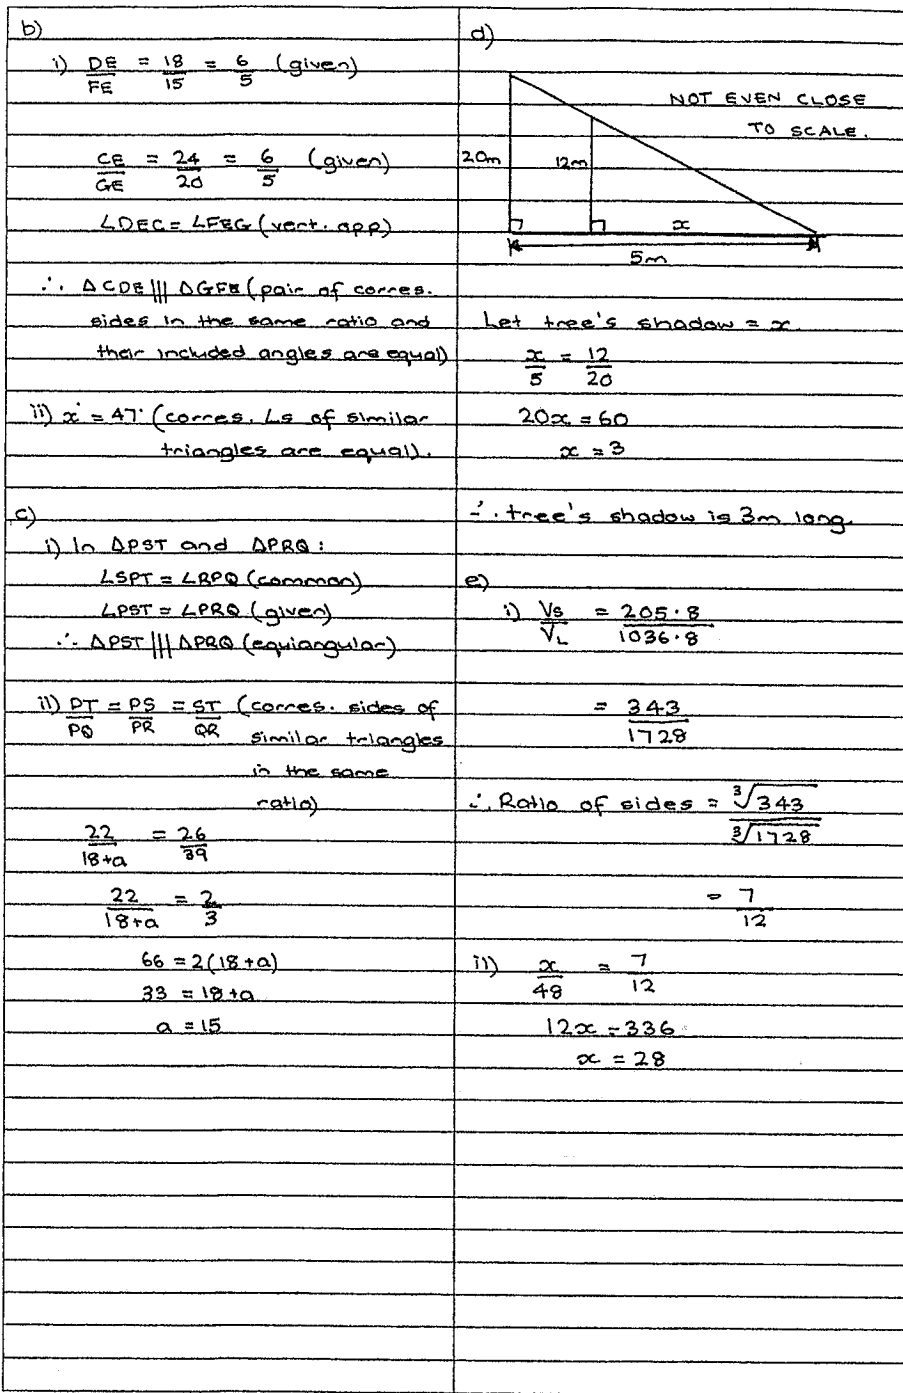 b)
i) DE/FE = 18/15 = 6/5 (given)
CE/GE = 24/20 = 6/5 (given)
∠DEC = ∠FEG (vert. opp)
∴ ΔCDE ||| ΔGFE (pair of corres.
sides in the same ratio and
their included angles are equal)
ii) x° = 47° (corres. ∠s of similar
triangles are equal).
c)
i) In ΔPST and ΔPRQ :
∠SPT = ∠RPQ (common)
∠PST = ∠PRQ (given)
∴ ΔPST ||| ΔPRQ (equiangular)
ii) PT/PQ = PS/PR = ST/QR (corres. sides of
similar triangles
in the same
ratio)
22/(18+a) = 26/39
22/(18+a) = 2/3
66 = 2(18+a)
33 = 18+a
a = 15
d)
NOT EVEN CLOSE
TO SCALE.
20m
12m
x
5m
Let tree's shadow = x.
x/5 = 12/20
20x = 60
x = 3
∴ tree's shadow is 3m long.
e)
i) Vs/VL = 205·8/1036·8
= 343/1728
∴ Ratio of sides = ∛343/∛1728
= 7/12
ii) x/48 = 7/12
12x = 336
x = 28